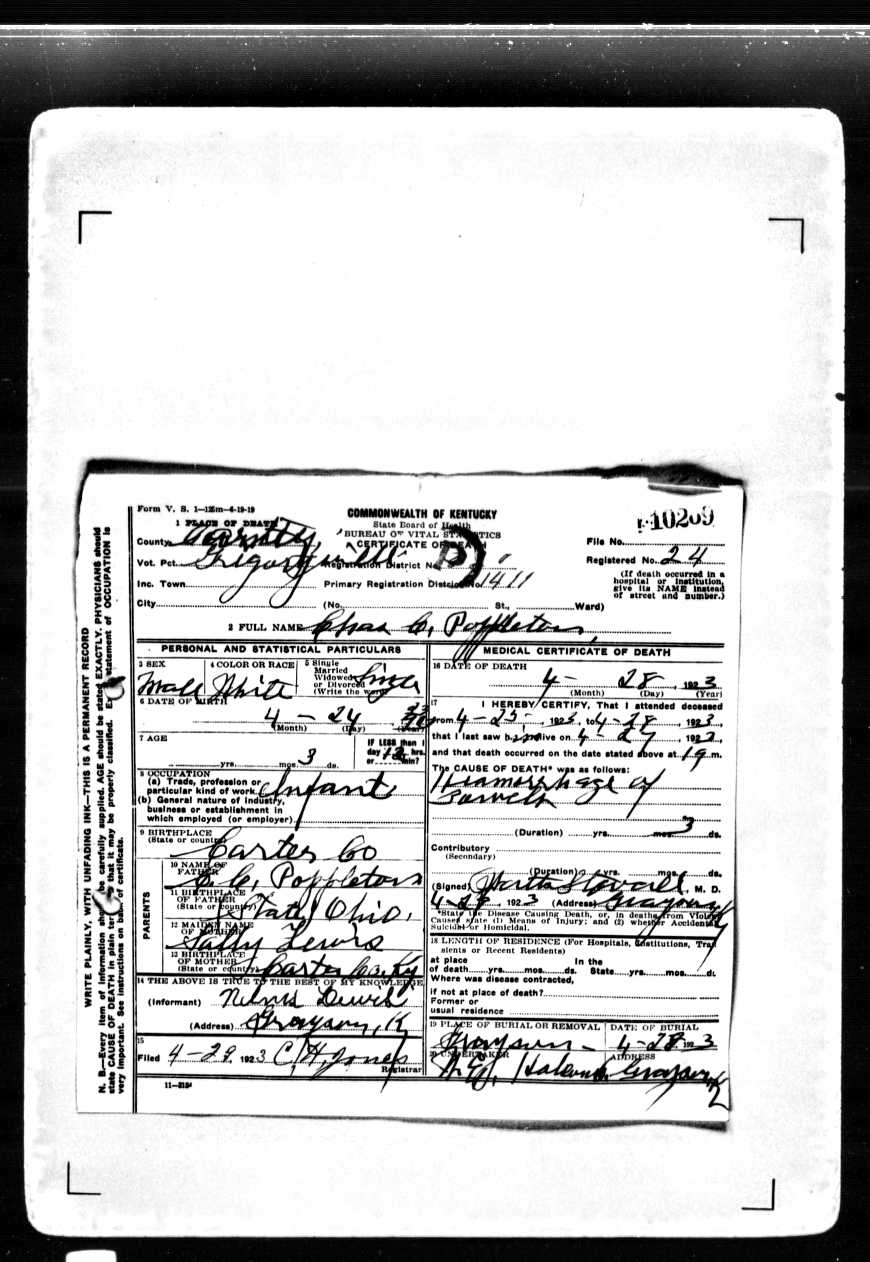 Form V. S. 1—125m—6-19-19
COMMONWEALTH OF KENTUCKY
State Board of Health
BUREAU OF VITAL STATISTICS
CERTIFICATE OF DEATH
10209
1 PLACE OF DEATH
County
File No.
Vot. Pct. Registration District No.
Registered No. 24
Inc. Town Primary Registration District No. 1411
(If death occurred in a
hospital or institution,
give its NAME instead
of street and number.)
City (No. St., Ward)
2 FULL NAME Chas C. Poppleton
PERSONAL AND STATISTICAL PARTICULARS
3 SEX
Male
4 COLOR OR RACE
White
5 Single
Married
Widowed
or Divorced
(Write the word)
Single
6 DATE OF BIRTH
4 — 24 23
(Month) (Day) (Year)
7 AGE
yrs. mos. 3 ds.
IF LESS than 1
day 12 hrs.
or min?
8 OCCUPATION
(a) Trade, profession or
particular kind of work Infant
(b) General nature of industry,
business or establishment in
which employed (or employer)
9 BIRTHPLACE
(State or country)
Carter Co
PARENTS
10 NAME OF
FATHER
C. C. Poppleton
11 BIRTHPLACE
OF FATHER
(State or country)
State Ohio.
12 MAIDEN NAME
OF MOTHER
Sally Lewis
13 BIRTHPLACE
OF MOTHER
(State or country)
Carter Co. Ky
14 THE ABOVE IS TRUE TO THE BEST OF MY KNOWLEDGE
(Informant) Lewis
(Address) Grayson, K
15
Filed 4-29, 1923 C. H. Jones
Registrar
11—3184
MEDICAL CERTIFICATE OF DEATH
16 DATE OF DEATH
4— 28, 1923
(Month) (Day) (Year)
17 I HEREBY CERTIFY, That I attended deceased
from 4-25-, 1923, to 4-28, 1923,
that I last saw him alive on 4- 27, 1923,
and that death occurred on the date stated above at 1 m.
The CAUSE OF DEATH* was as follows:
Heamorhage of
Bowels
(Duration) yrs. mos. 3 ds.
Contributory
(Secondary)
(Duration) yrs. mos. ds.
(Signed) Stovall, M. D.
4-28, 1923 (Address) Grayson Ky
*State the Disease Causing Death, or, in deaths from Violent
Causes state (1) Means of Injury; and (2) whether Accidental,
Suicidal or Homicidal.
18 LENGTH OF RESIDENCE (For Hospitals, Institutions, Tran
sients or Recent Residents)
at place In the
of death yrs. mos. ds. State yrs. mos. ds.
Where was disease contracted,
if not at place of death?
Former or
usual residence
19 PLACE OF BURIAL OR REMOVAL
Grayson—
DATE OF BURIAL
4-28, 1923
20 UNDERTAKER
ADDRESS
Grayson, K
WRITE PLAINLY, WITH UNFADING INK—THIS IS A PERMANENT RECORD
N. B.—Every item of information should be carefully supplied. AGE should be stated EXACTLY. PHYSICIANS should
state CAUSE OF DEATH in plain terms that it may be properly classified. Exact statement of OCCUPATION is
very important. See instructions on back of certificate.